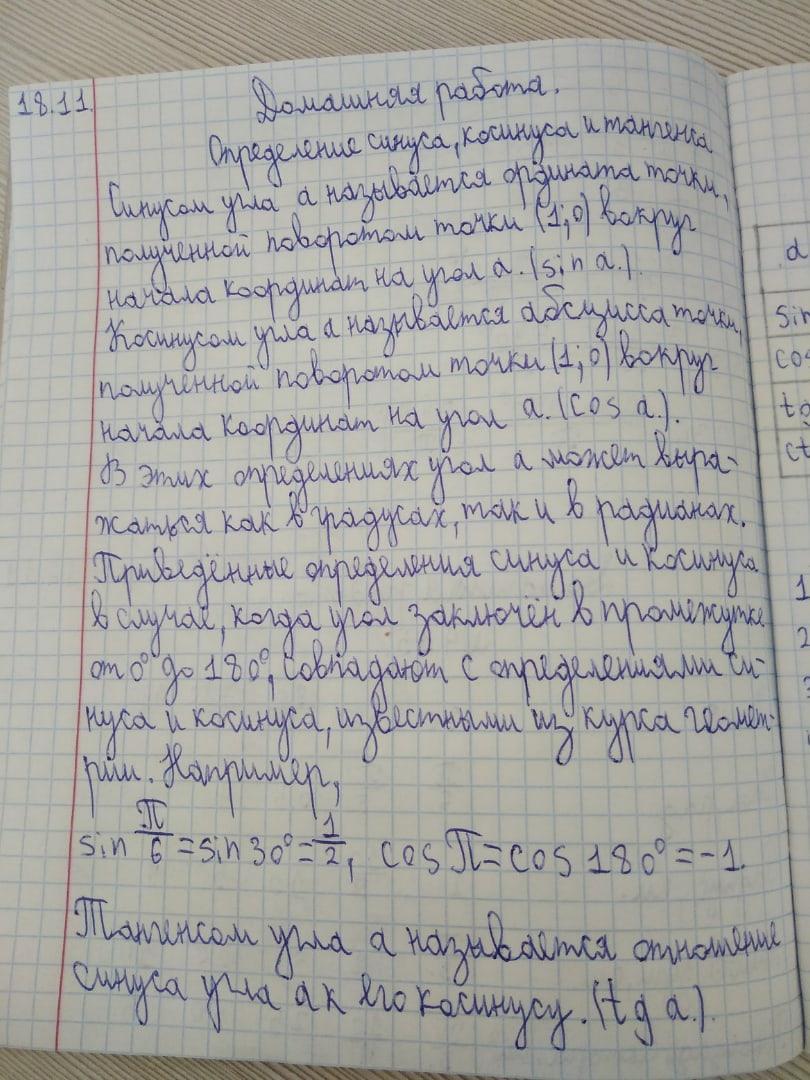 18.11.
Домашняя работа.
Определение синуса, косинуса и тангенса
Синусом угла a называется ордината точки,
полученной поворотом точки (1;0) вокруг
начала координат на угол a. (sin a.).
Косинусом угла a называется абсцисса точки,
полученной поворотом точки (1;0) вокруг
начала координат на угол a. (cos a.).
В этих определениях угол a может выра-
жаться как в градусах, так и в радианах.
Приведённые определения синуса и косинуса
в случае, когда угол заключён в промежутке
от 0° до 180°, совпадают с определениями си-
нуса и косинуса, известными из курса геомет-
рии. Например,
sin π/6 = sin 30° = 1/2, cos π = cos 180° = -1.
Тангенсом угла a называется отношение
синуса угла a к его косинусу. (tg a.).
d
sin
cos
tg
ct
1
2
3